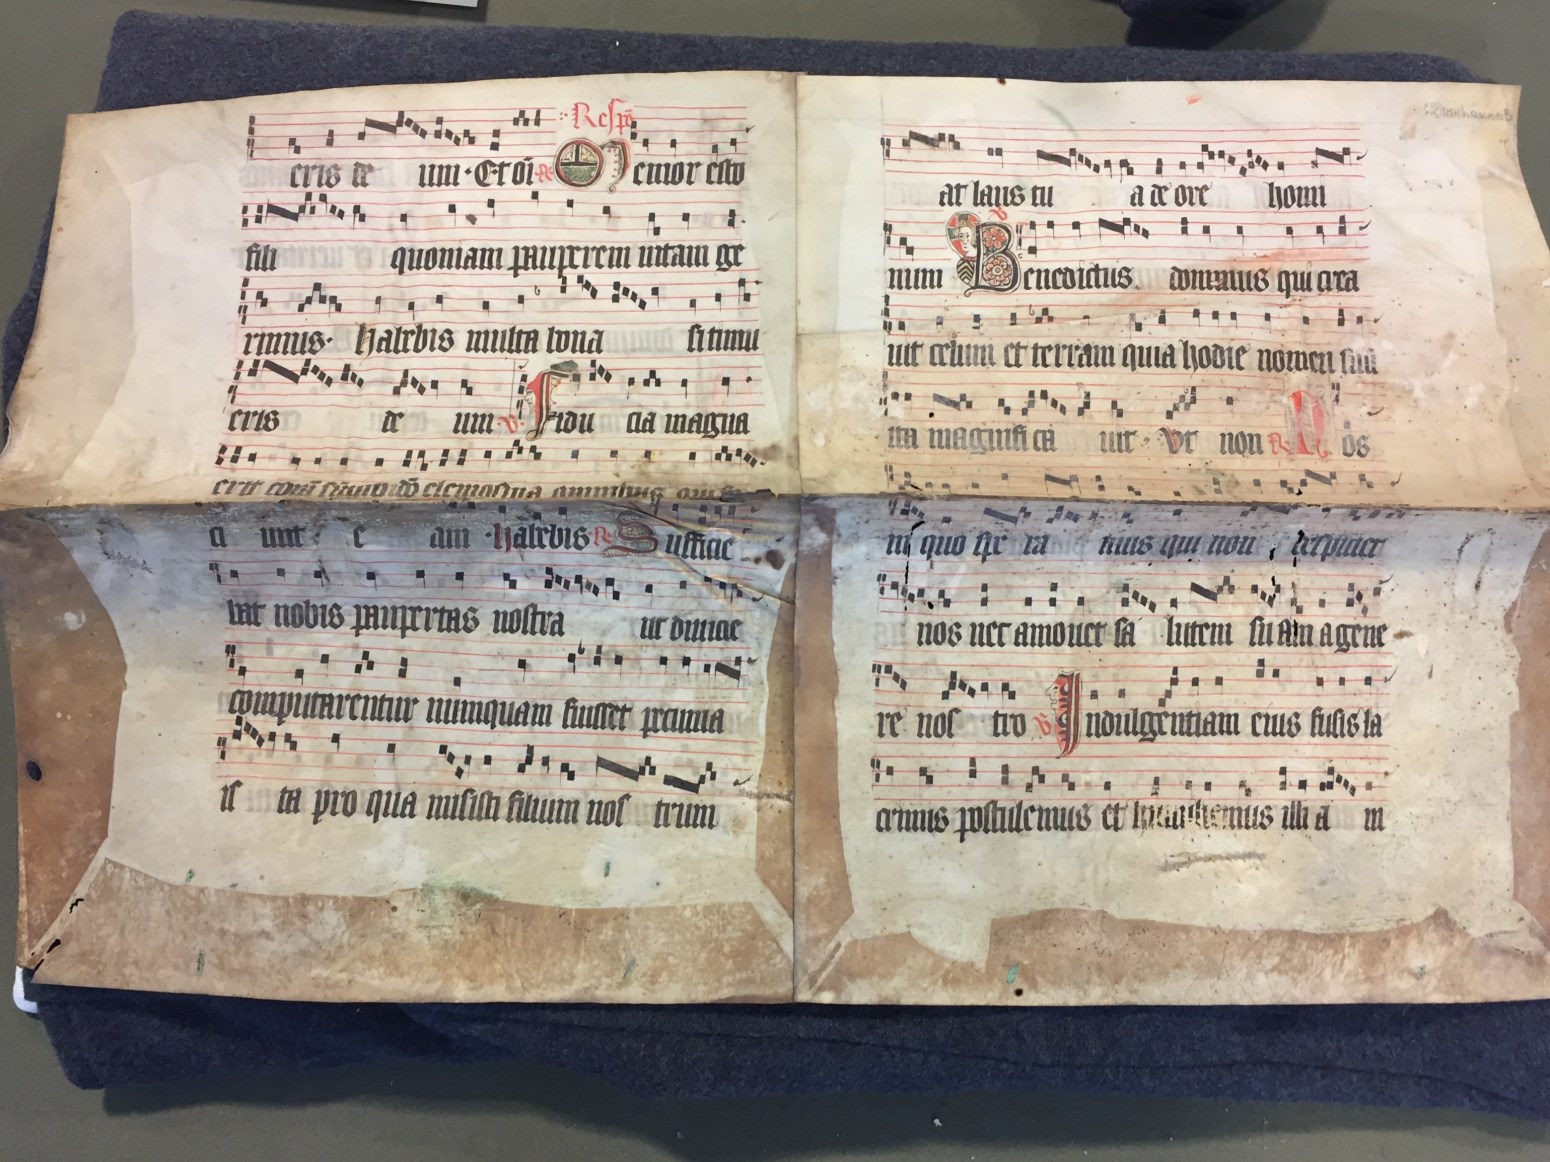 Respō
eris de um · Et oī℟ Memor esto
fili quoniam pauperem uitam ge
rimus · habebis multa bona si timu
eris de um ℣ Fidu cia magna
erit corā elemosina omnibus
ci unt e am · habebis ℟ Suffície
bat nobis paupertas nostra ut diuicie
computarentur numquam fuisset pecunia
is ta pro qua misisti filium nos trum
at laus tu a de ore homi
num ℣ Benedictus dominus qui crea
uit celum et terram quia hodie nomen suū
ita magnifi ca uit · Vt non ℟ Nos
in quo spe ra mus qui non despiciet
nos nec amouet sa lutem su am a gene
re nos tro ℣ Indulgentiam eius fusis la
crimis postulemus et humiliemus illi a n